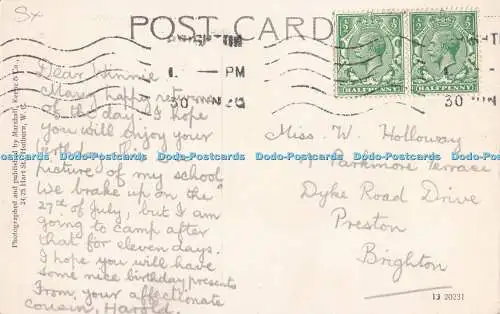 Sx
POST CARD
BRIGHTON
1. - PM
30 JUN 20
30 JUN
HALFPENNY
HALFPENNY
Dear Winnie
Many happy returns
of the day. I hope
you will enjoy your
birthday. This is a
picture of my school
We brake up on the
27th of July, but I am
going to camp after
that for eleven days.
I hope you will have
some nice birthday presents
From your affectionate
cousin, Harold.
Miss. W. Holloway
Parkmore Terrace
Dyke Road Drive
Preston
Brighton
Photographed and published by Marshall, Keene & Co.,
Hart St., Holborn, W.C.
13 20231
Dodo-Postcards Dodo-Postcards Dodo-Postcards Dodo-Postcards Dodo-Postcards